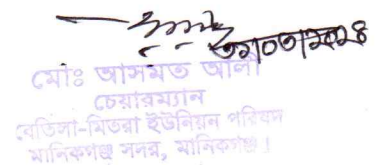 ৩১০৩২০২৪
মোঃ আসমত আলী
চেয়ারম্যান
বেতিলা-মিতরা ইউনিয়ন পরিষদ
মানিকগঞ্জ সদর, মানিকগঞ্জ।